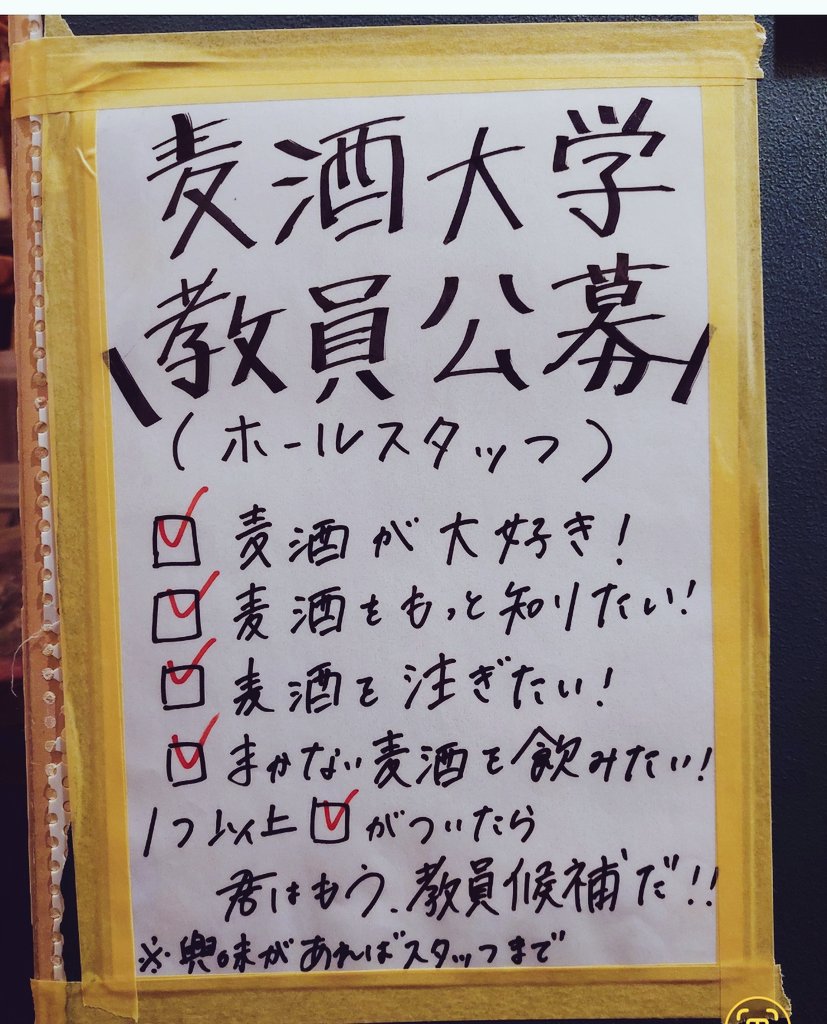 麦酒大学
\教員公募/
(ホールスタッフ)
☑ 麦酒が大好き!
☑ 麦酒をもっと知りたい!
☑ 麦酒を注ぎたい!
☑ まかない麦酒を飲みたい!
1つ以上☑がついたら
君はもう、教員候補だ!!
※興味があればスタッフまで